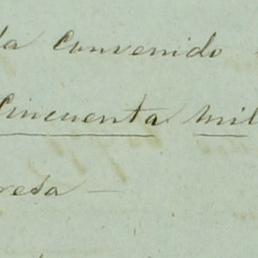 da convenido
Cincuenta mil
reda —